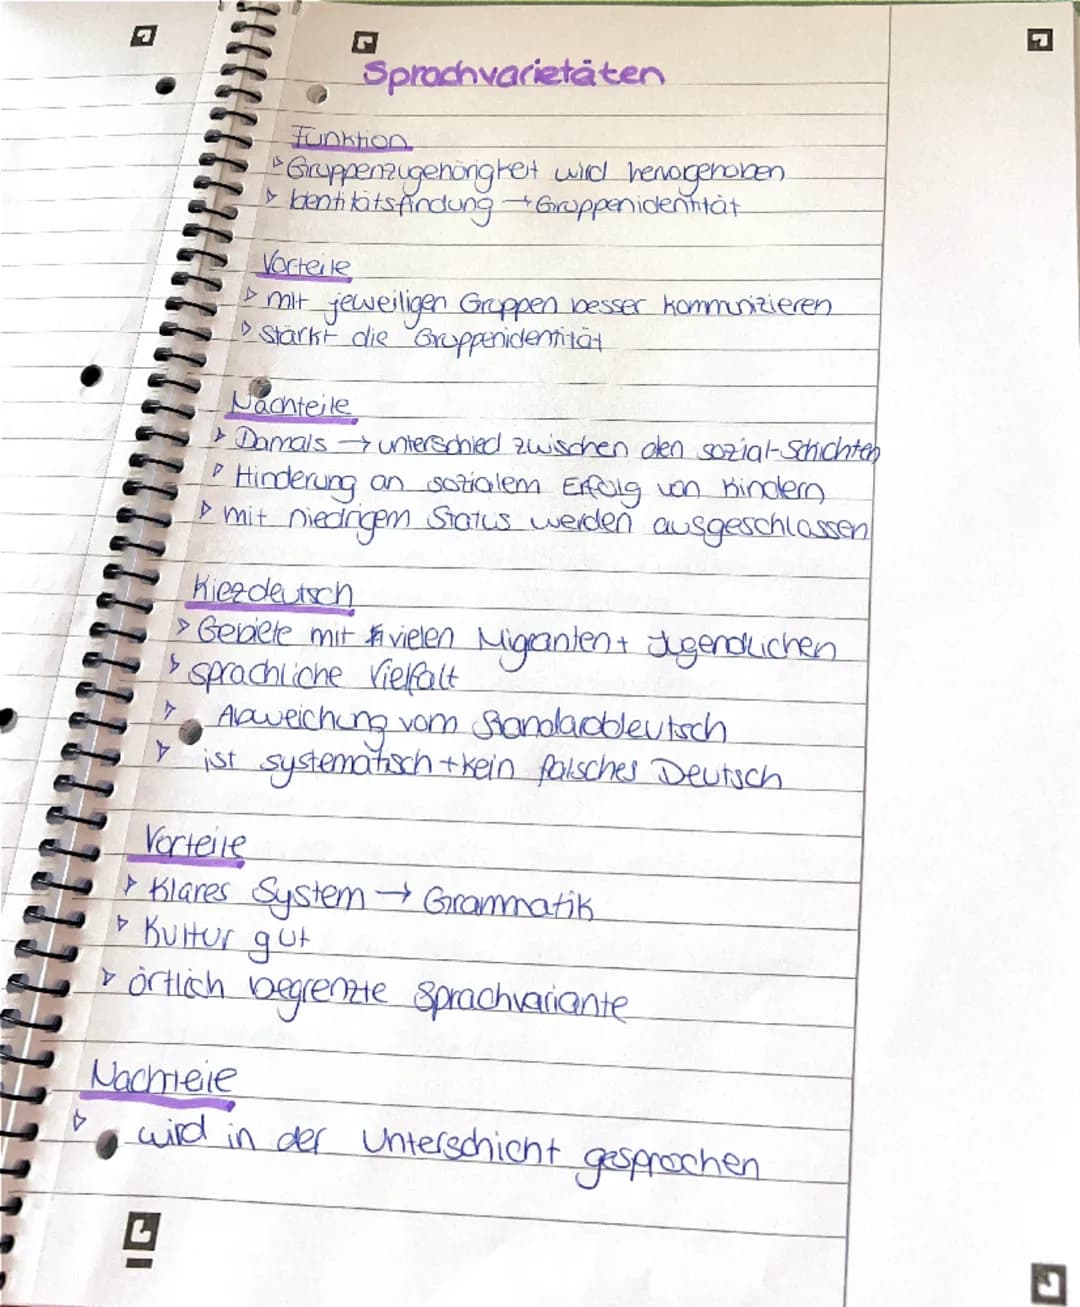 Sprachvarietäten
Funktion
▹ Gruppenzugehörigkeit wird hervorgehoben
▹ Identitätsfindung → Gruppenidentität
Vorteile
▹ mit jeweiligen Gruppen besser kommunizieren
▹ Stärkt die Gruppenidentität
Nachteile
▹ Damals → unterschied zwischen den sozial-Schichten
▹ Hinderung an sozialem Erfolg von Kindern
▹ mit niedrigem Status werden ausgeschlossen
Kiezdeutsch
▹ Gebiete mit vielen Migranten + Jugendlichen
▹ sprachliche Vielfalt
▹ Abweichung vom Standarddeutsch
▹ ist systematisch + kein falsches Deutsch
Vorteile
▹ Klares System → Grammatik
▹ Kultur gut
▹ örtlich begrenzte Sprachvariante
Nachteile
▹ wird in der Unterschicht gesprochen